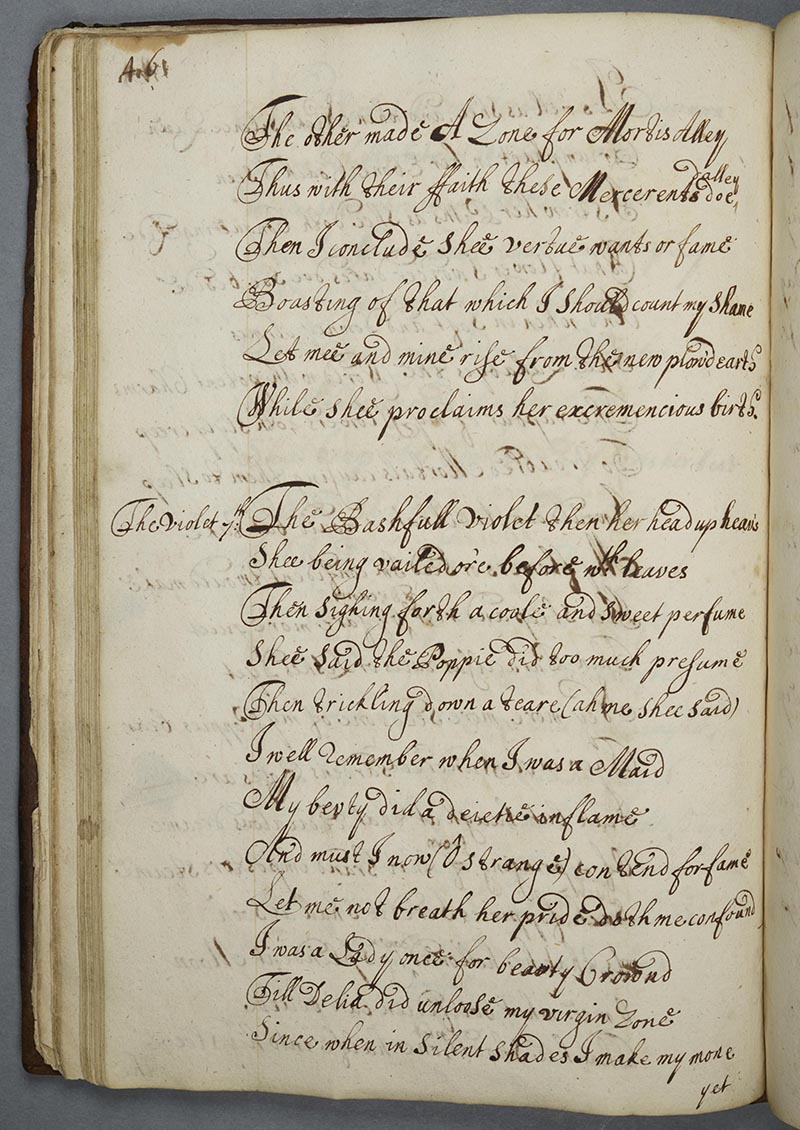 46
The other made A Zone for Mortis Alley
Thus with their ffaith these Mercerents doe
dalley
Then I conclude shee vertue wants or fame
Boasting of that which I should count my shame
Let mee and mine rise from the new plow'd earth
While shee proclaims her excremencious birth.
The Violet 7th: The Bashfull Violet then her head up heavs
Shee being vailed o're before wth leaves
Then sighing forth a coole and sweet perfume
Shee said the Poppie did too much presume
Then trickling down a teare (ah me shee said)
I well remember when I was a Maid
My bevty did a deietie inflame
And must I now (O strange) contend for fame
Let me not breath her pride doth me confound
I was a Lady once for beavty Crownd
Till Delia did unloose my virgin Zone
Since when in silent shades I make my mone
yet